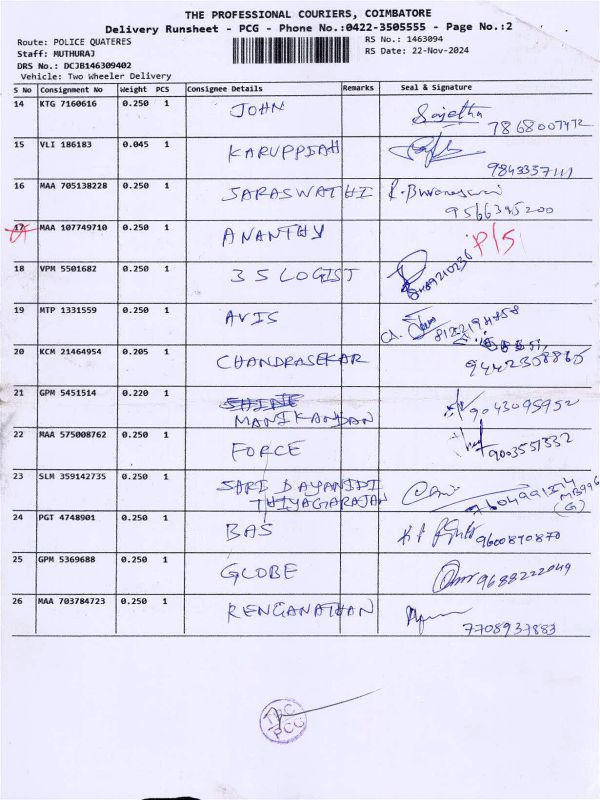 THE PROFESSIONAL COURIERS, COIMBATORE
Delivery Runsheet - PCG - Phone No.:0422-3505555 - Page No.:2
Route: POLICE QUATERES
RS No.: 1463094
Staff: MUTHURAJ
RS Date: 22-Nov-2024
DRS No.: DCJB146309402
Vehicle: Two Wheeler Delivery
S No Consignment No Weight PCS Consignee Details Remarks Seal & Signature
14 KTG 7160616 0.250 1 JOHN
7868007472
15 VLI 186183 0.045 1 KARUPPIAH
9843357111
16 MAA 705138228 0.250 1 SARASWATHI
9566395200
17 MAA 107749710 0.250 1 ANANTHY P/S
18 VPM 5501682 0.250 1 3 S LOGIST
19 MTP 1331559 0.250 1 AVIS
8122194758
20 KCM 21464954 0.205 1 CHANDRASEKAR
9442358865
21 GPM 5451514 0.220 1 MANIKANDAN 9043095952
22 MAA 575008762 0.250 1 FORCE 9003551332
23 SLM 359142735 0.250 1 SARI DAYANIDI
THIYAGARAJAN
(G)
24 PGT 4748901 0.250 1 BAS 9600870870
25 GPM 5369688 0.250 1 GLOBE 9688222049
26 MAA 703784723 0.250 1 RENGANATHAN
7708937883
PCG